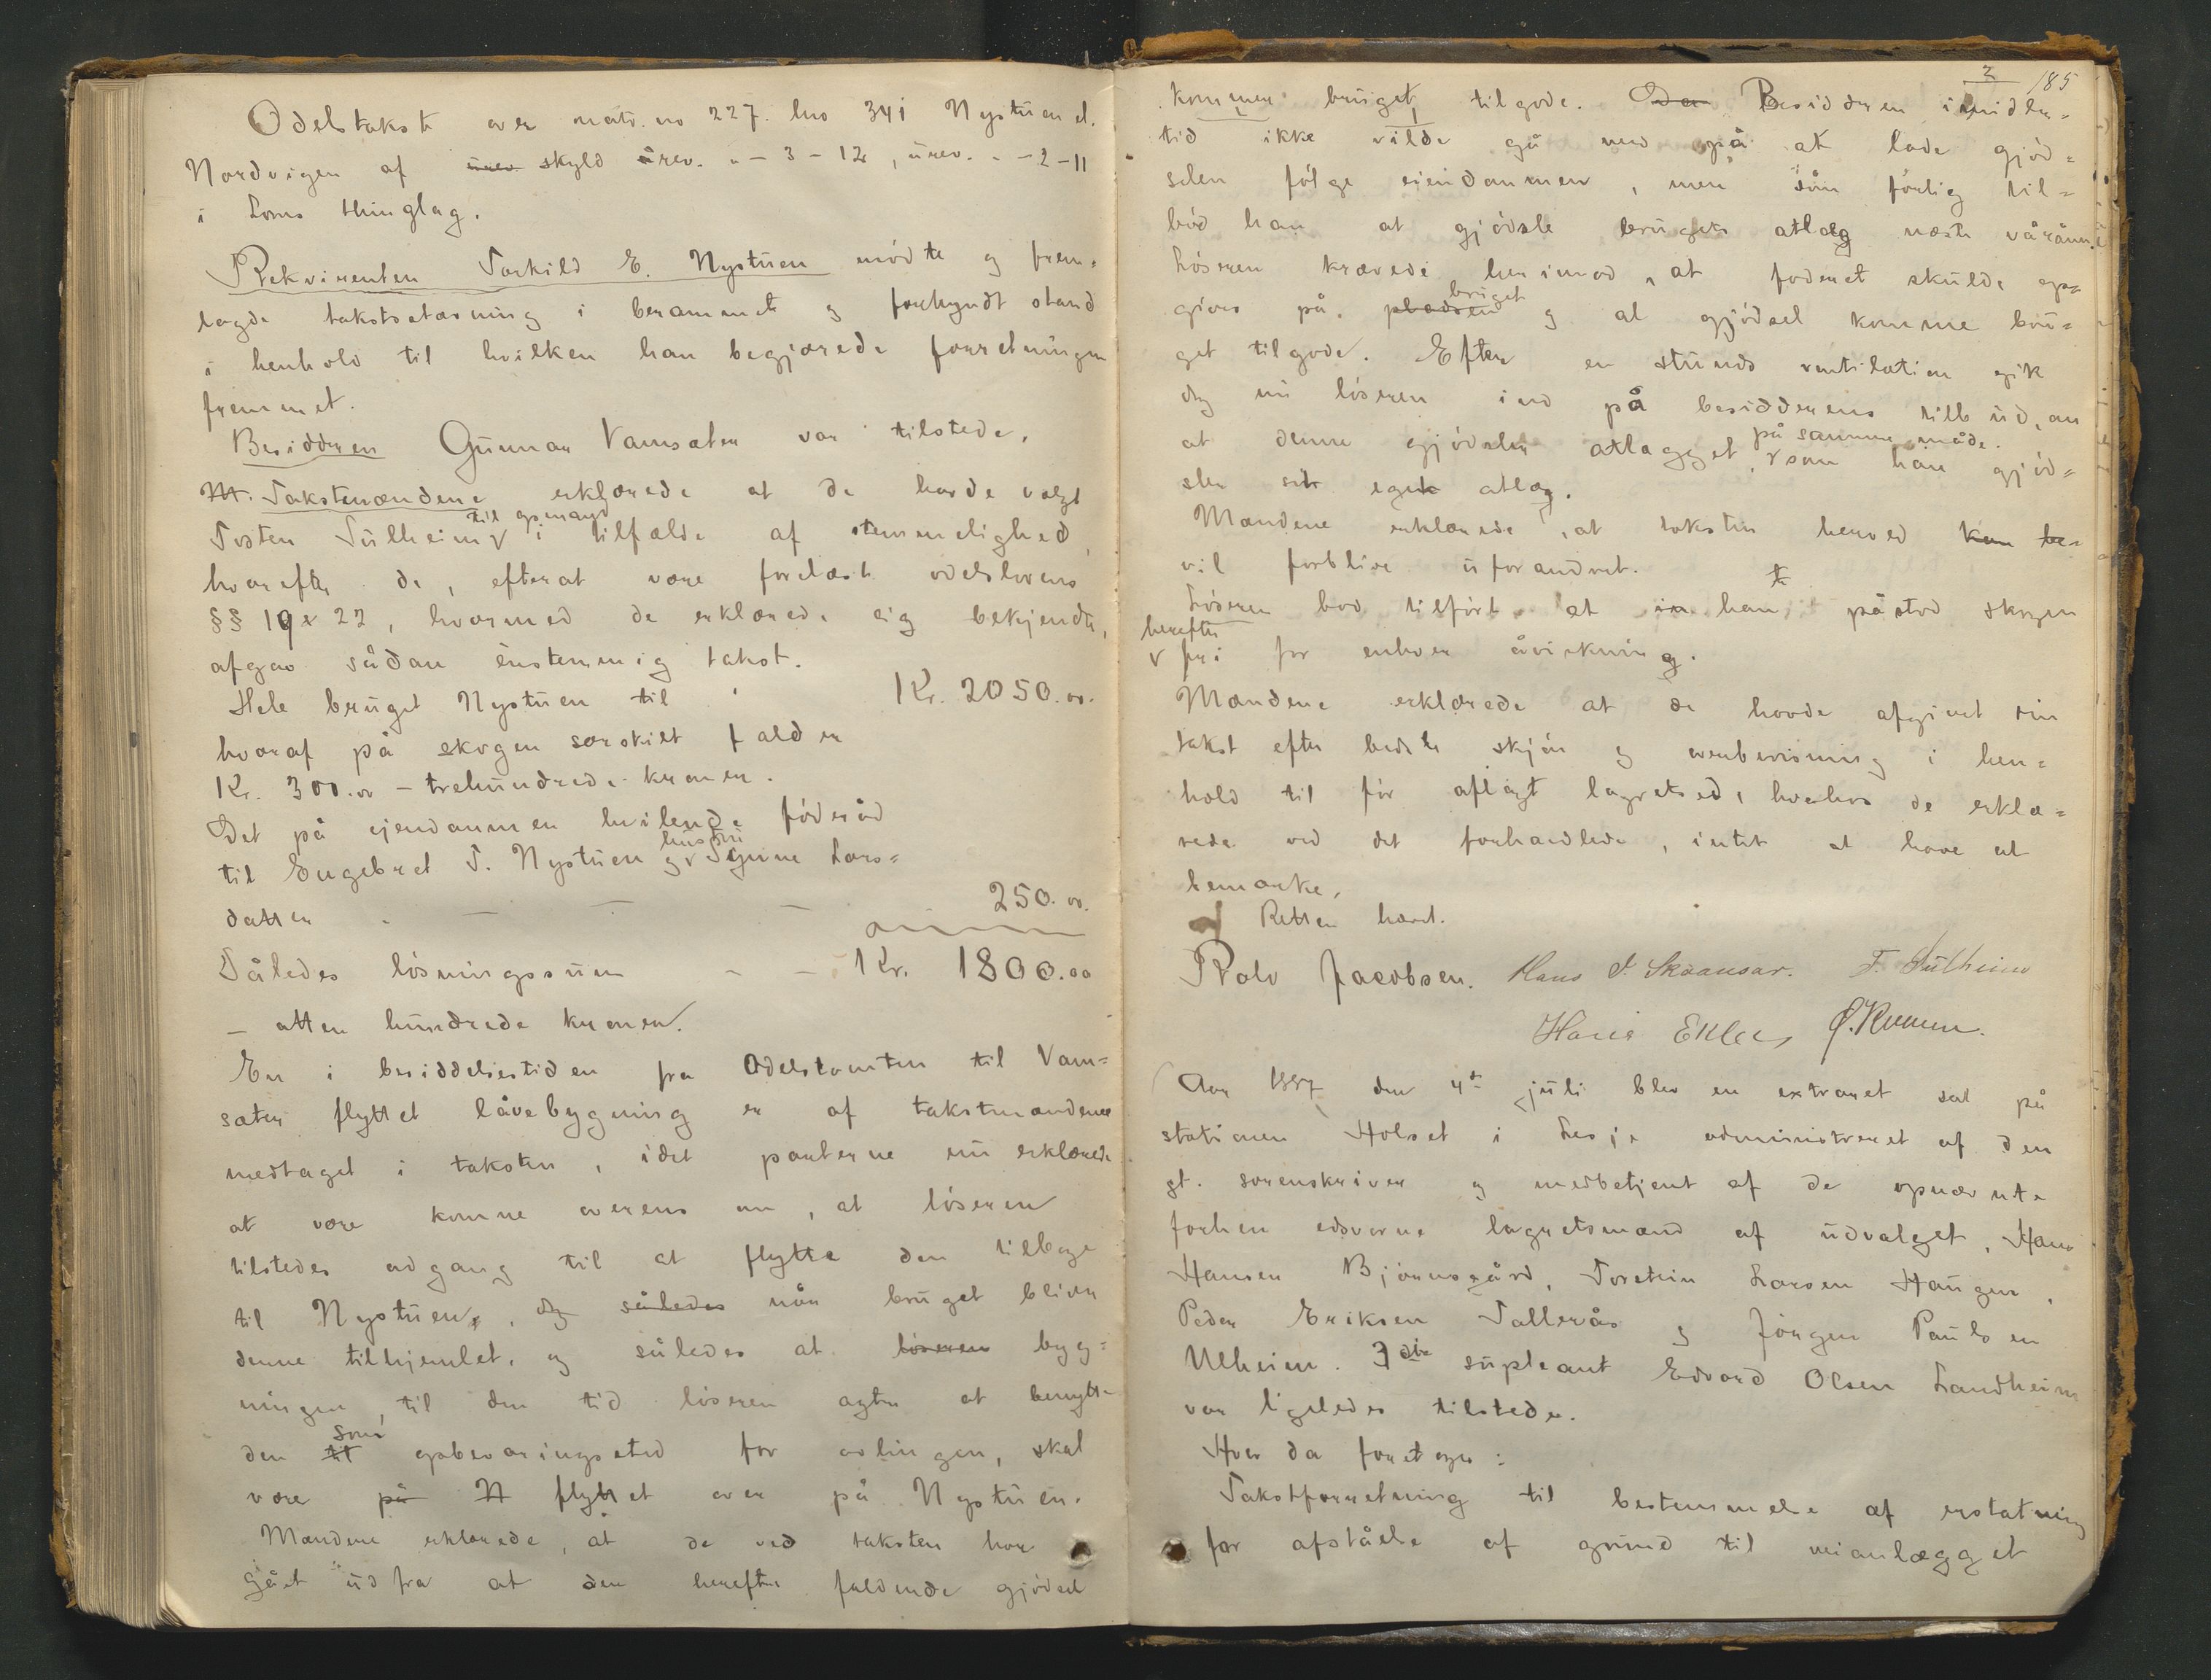 Odelstakst over matr. no 227. lno 341 Nystuen el.
Nordvigen af urev. skyld urev. " - 3 - 12, urev. " - 2 - 11
i Loms thinglag.
Rekvirenten Torkild E. Nystuen mødte og frem=
lagde takstsetasning i berammet og forkyndt stand
i henhold til hvilken han begjærede forretningen
fremmet.
Besidderen Gunnar Vamsæter var tilstede.
M. Takstmændene erklærede at de havde valgt
til opmand
Tosten Sulheim i tilfælde af stemmelighed,
hvorefter de, efterat være forelæst odelslovens
§§ 19 & 22, hvormed de erklærede sig bekjendt,
afgav sådan enstemmig takst.
Hele bruget Nystuen til Kr. 2050.00.
hvoraf på skogen særskilt falder
Kr. 300.00 - trehundrede kroner.
Det på ejendommen hvilende føderåd
hustru
til Engebret T. Nystuen og Synne Lars=
datter - - - 250.00.
Således løsningssum - - Kr. 1800.00
- atten hundrede kroner.
En i besiddelsestiden fra Odelstomten til Vam=
sæter flyttet låvebygning er af takstmændene
medtaget i taksten, idet parterne nu erklærede
at være komne overens om, at løseren
tilstedes adgang til at flytte den tilbage
til Nystuen, og således når bruget bliver
denne tilhjemlet, og således at løseren byg=
ningen, til den tid løseren agter at benytte
som
den til opbevaringssted for avlingen, skal
være på N flyttet over på Nystuen.
Mændene erklærede, at de ved taksten har
gået ud fra at den herefter faldende gjødsel
2 185
kommer bruget tilgode. Da Besidderen imidler=
tid ikke vilde gå med på at lade gjød=
selen følge eiendommen, men som forlig til=
bød han at gjødsle brugets atlæg næste våronn.
Løseren krævede herimod, at foderet skulde op=
bruget
gives på pladsen og al gjødsel komme bru=
get tilgode. Efter en stunds ventilation gik
dog nu løseren ind på besidderens tilbud, om
på samme måde
at denne gjødsler atlægget, som han gjød=
sler sit eget atlæg.
Mændene erklærede, at taksten herved kan be=
vil forblive uforandret.
Løseren bad tilført at in han påstod skogen
herefter
fri for enhver åvirkning.
Mændene erklærede at de havde afgivet sin
takst efter bedste skjøn og overbevisning i hen=
hold til før aflagt lagretsed, hvorhos de erklæ=
rede ved det forhandlede, intet at have at
bemærke.
Retten hævet.
Rolv Jacobsen. Hans T. Skaansar. T. Sulheim
Hans Eklee
Aar 1887 den 4de juli blev en extraret sat på
stationen Holset i Lesje administreret af den
gt. sorenskriver og medbetjent af de opnævnte
forhen edsvorne lagretsmænd af udvalget, Hans
Hansen Bjørnsgård, Torstein Larsen Haugen,
Peder Eriksen Tallerås og Jørgen Paulsen
Ulheim. 3die supleant Edvard Olsen Landheim
var ligeledes tilstede.
Hvor da foretoges:
Takstforretning til bestemmelse af erstatning
for afståelse af grund til veianlægget